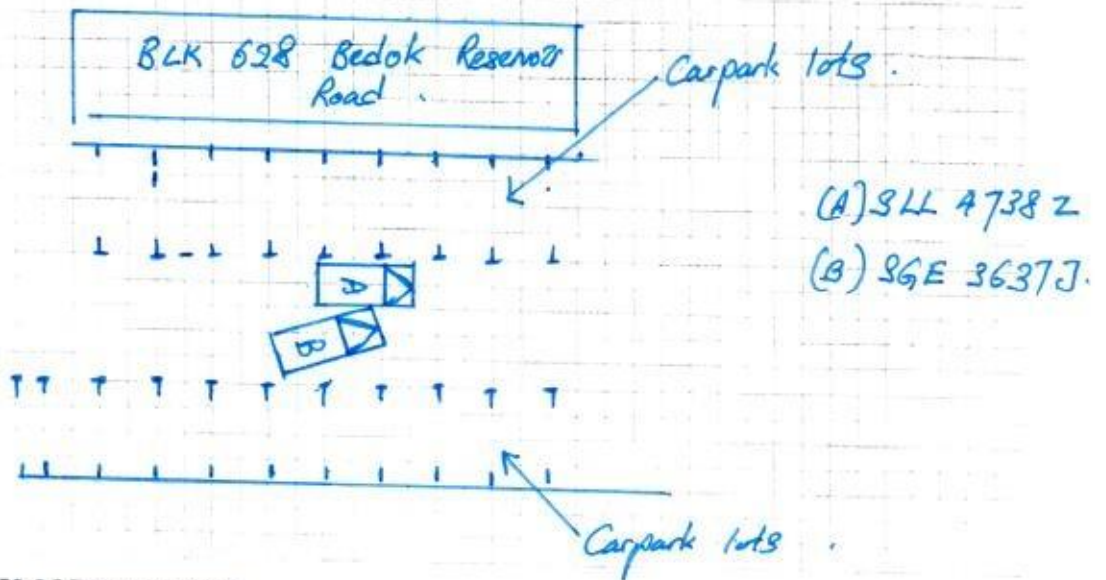 BLK 628 Bedok Reservoir
Road .
Carpark lots .
(A) SLL 4738 Z
(B) SGE 3637J.
A
B
Carpark lots .